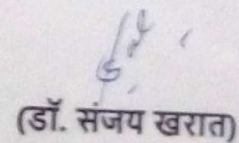 (डॉ. संजय खरात)